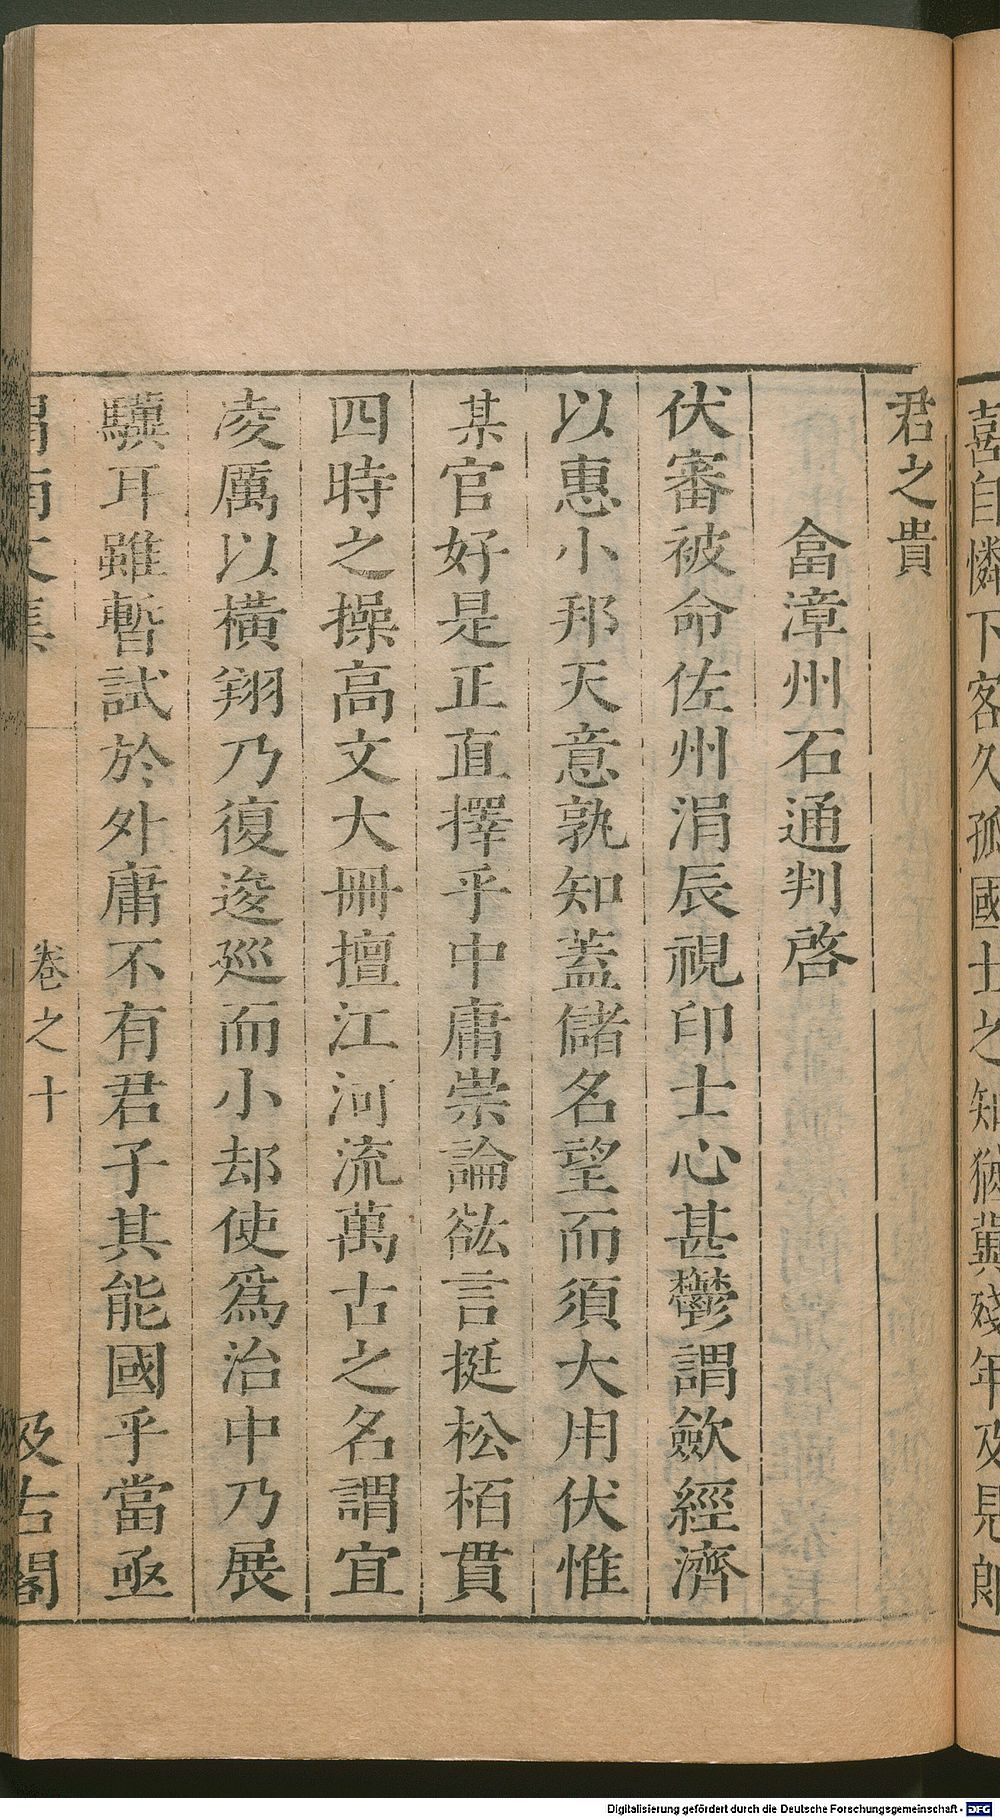 喜自憐下客久孤國士之知猶冀殘年及見郎
君之貴
答漳州石通判啓
伏審被命佐州涓辰視印士心甚鬱謂歛經濟
以惠小邦天意孰知蓋儲名望而須大用伏惟
某官好是正直擇乎中庸崇論谹言挺松栢貫
四時之操高文大冊擅江河流萬古之名謂宜
凌厲以橫翔乃復逡廵而小却使爲治中乃展
驥耳雖暫試於外庸不有君子其能國乎當亟
渭南文集 卷之十 汲古閣
Digitalisierung gefördert durch die Deutsche Forschungsgemeinschaft - DFG